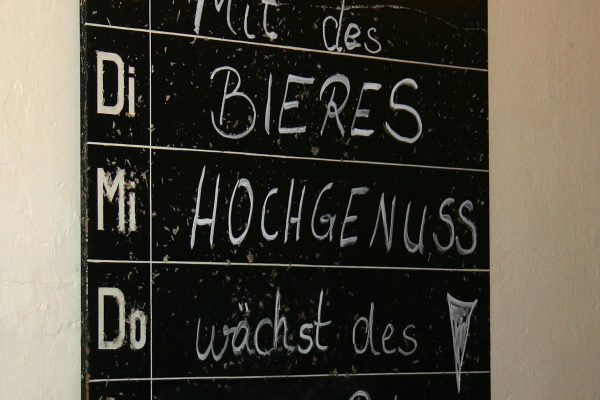 Mit des
Di BIERES
Mi HOCHGENUSS
Do wächst des